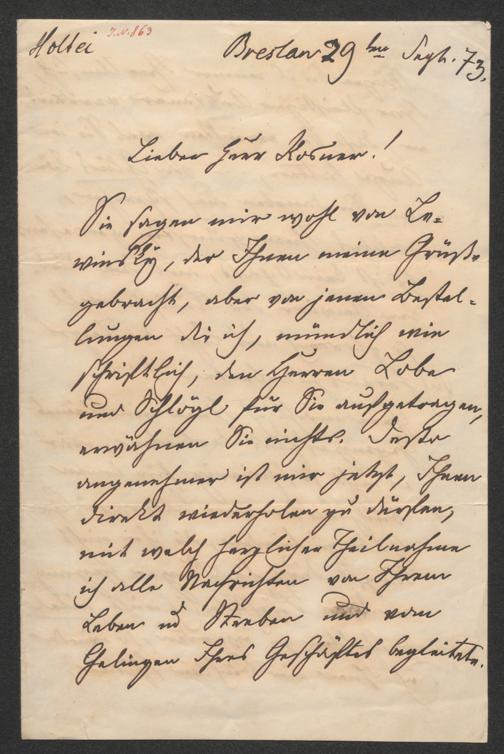 Holtei J.N. 863 Breslau 29ten Sept. 73.
Lieber Herr Rosner!
Sie sagen mir wohl von Le-
winsky, der Ihnen meine Grüße
gebracht, aber von jenen Bestel-
lungen die ich, mündlich wie
schriftlich, den Herren Lobe
und Schlögl für Sie aufgetragen,
erwähnen Sie nichts. Desto
angenehmer ist mir jetzt, Ihnen
direkt wiederholen zu dürfen,
mit welch herzlicher Theilnahme
ich alle Nachrichten von Ihrem
Leben ud Streben und vom
Gelingen Ihres Geschäftes begleitete.